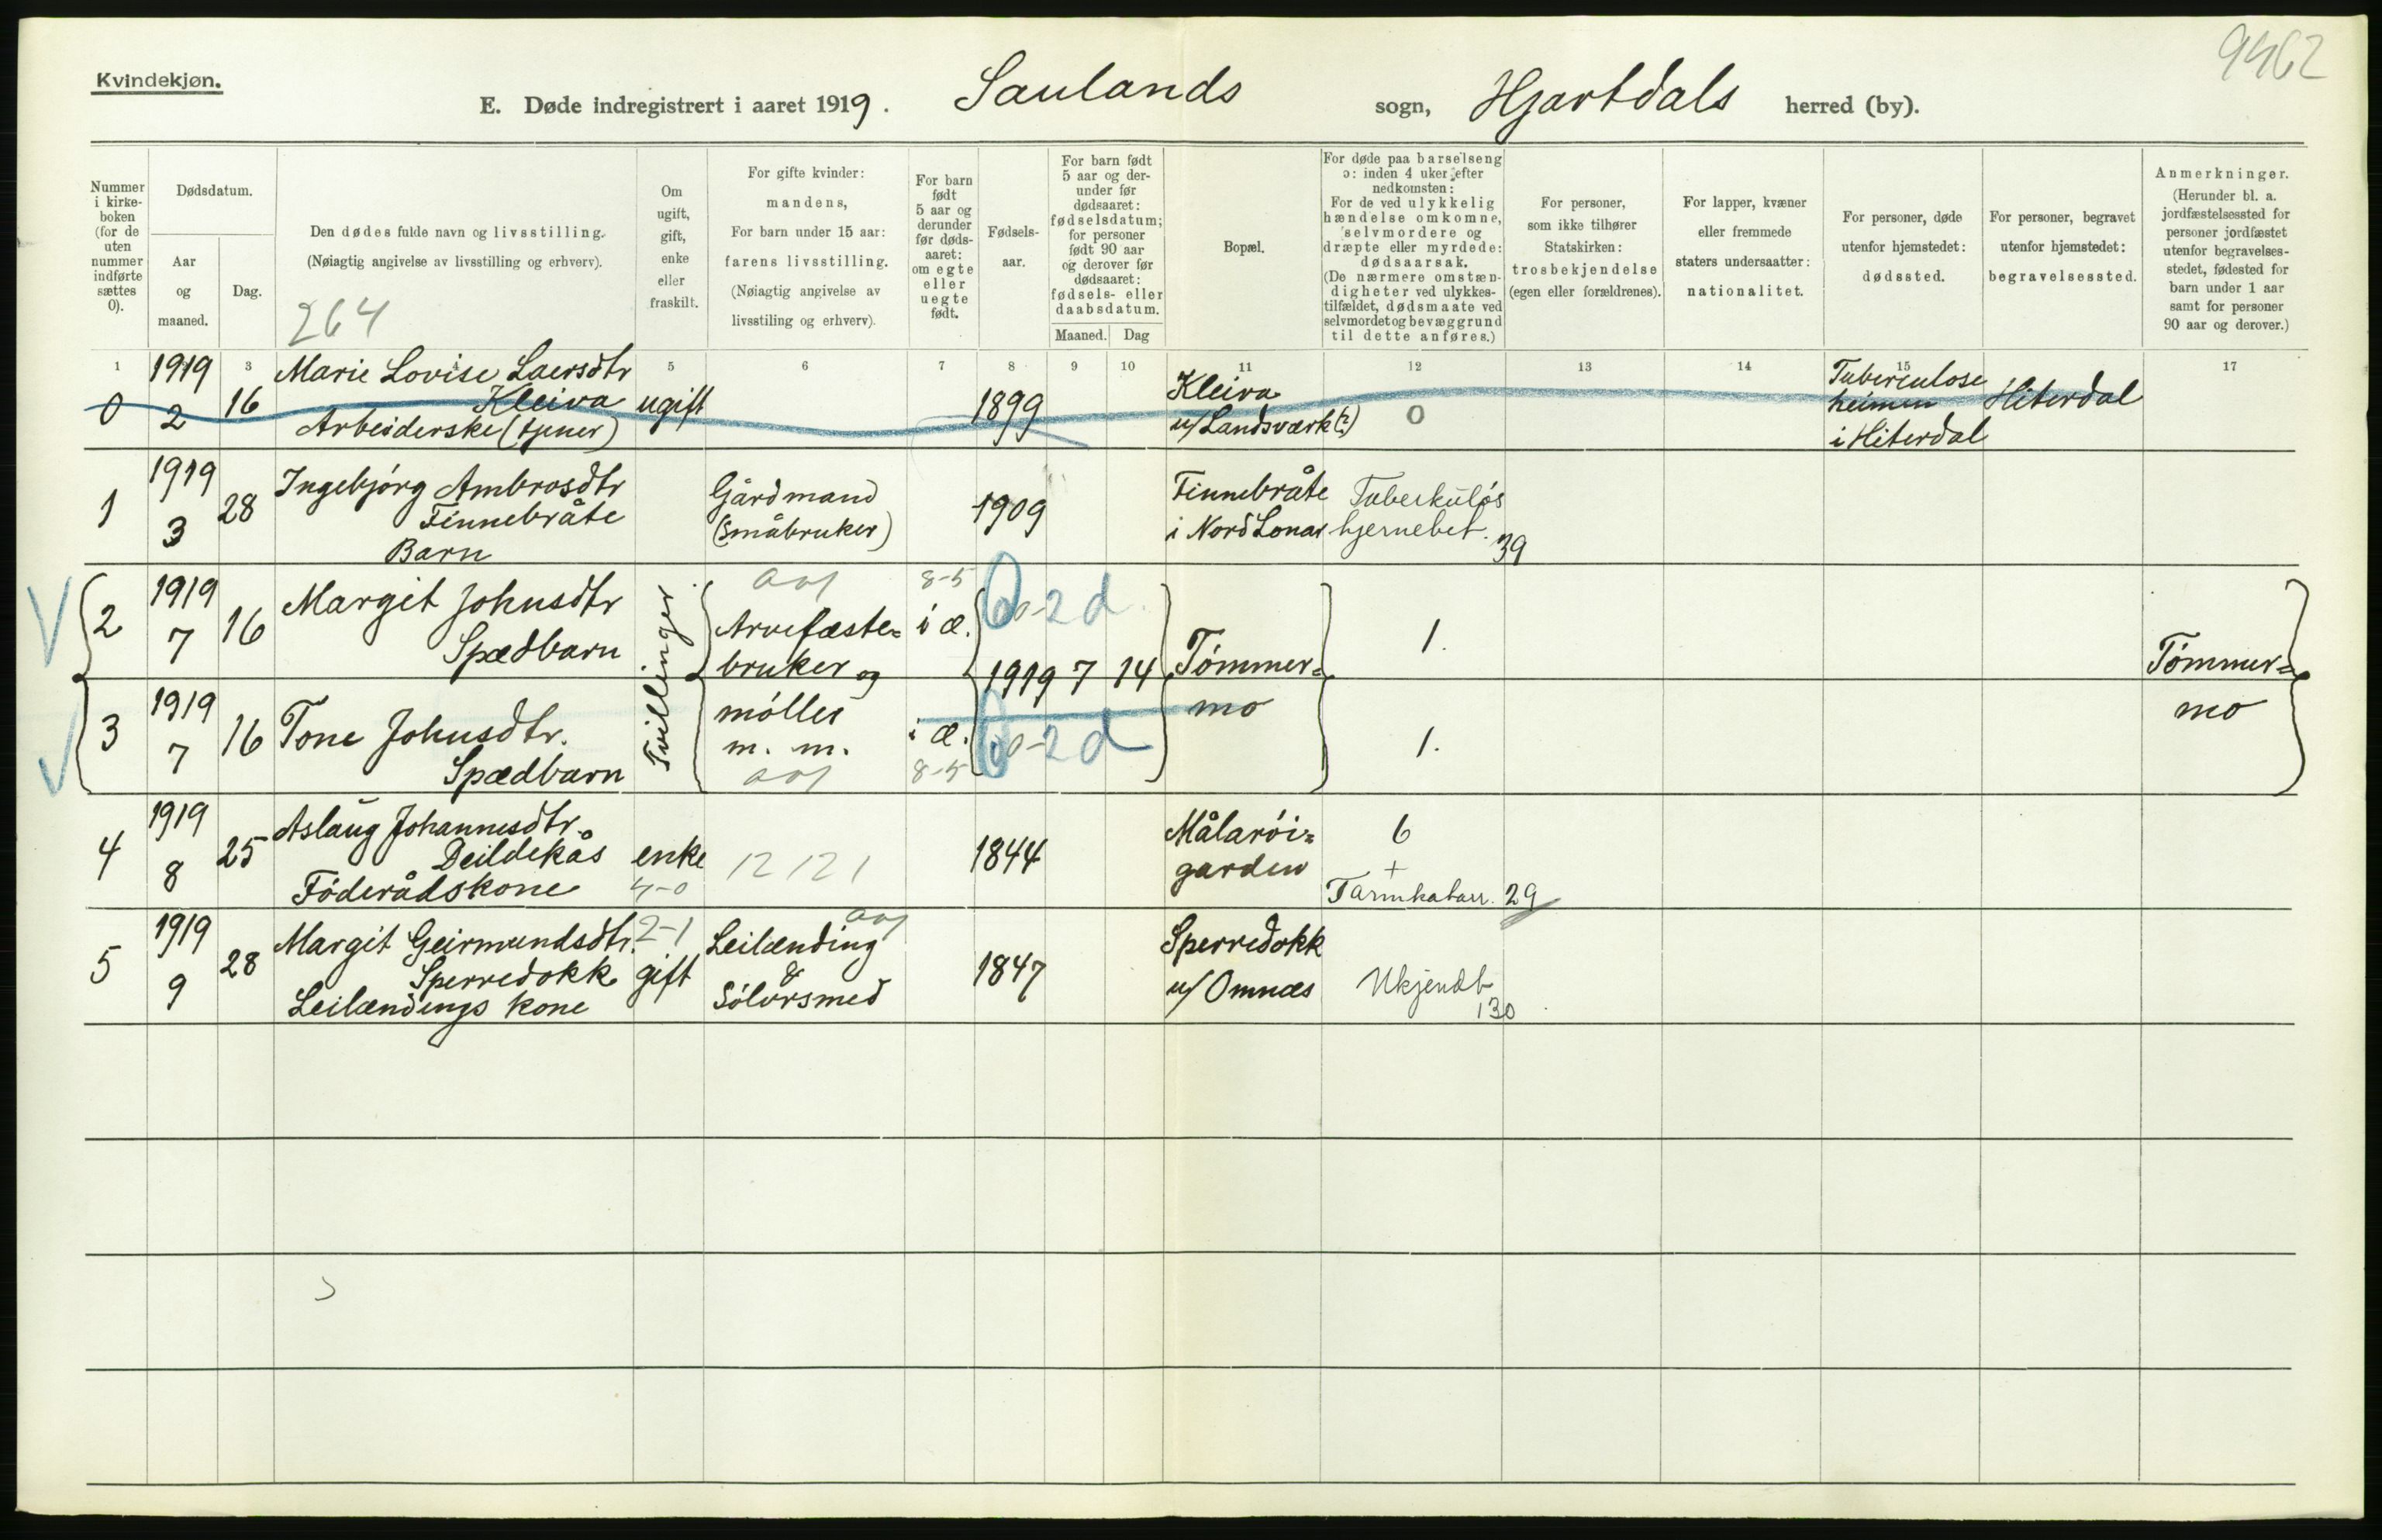 9462
Kvindekjøn.
E. Døde indregistrert i aaret 1919. Saulands sogn, Hjartdals herred (by).
Nummer i kirke-boken (for de uten nummer indførte sættes 0).
Dødsdatum.
Aar og maaned.
Dag.
Den dødes fulde navn og livsstilling.
(Nøiagtig angivelse av livsstilling og erhverv).
264
Om ugift, gift, enke eller fraskilt.
For gifte kvinder: mandens,
For barn under 15 aar: farens livsstilling.
(Nøiagtig angivelse av livsstiling og erhverv).
For barn født 5 aar og derunder før døds-aaret: om egte eller uegte født.
Fødsels-aar.
For barn født 5 aar og der-under før dødsaaret: fødselsdatum; for personer født 90 aar og derover før dødsaaret: fødsels- eller daabsdatum.
Maaned. Dag
Bopæl.
For døde paa barselseng ɔ: inden 4 uker efter nedkomsten:
For de ved ulykkelig hændelse omkomne, selvmordere og dræpte eller myrdede: dødsaarsak.
(De nærmere omstæn-digheter ved ulykkes-tilfældet, dødsmaate ved selvmordet og bevæggrund til dette anføres.)
For personer, som ikke tilhører Statskirken: trosbekjendelse (egen eller forældrenes).
For lapper, kvæner eller fremmede staters undersaatter: nationalitet.
For personer, døde utenfor hjemstedet: dødssted.
For personer, begravet utenfor hjemstedet: begravelsessted.
Anmerkninger.
(Herunder bl. a. jordfæstelsessted for personer jordfæstet utenfor begravelses-stedet, fødested for barn under 1 aar samt for personer 90 aar og derover.)
1 3 5 6 7 8 9 10 11 12 13 14 15 17
0 1919 2 16 Marie Lovise Laersdtr
Kleiva
Arbeiderske (tjener)
ugift 1899
Kleiva
u/Landsværk (?)
0
Tuberculose
heimen
i Hiterdal
Hiterdal
1 1919 3 28 Ingebjørg Ambrosdtr
Finnebråte
Barn
Gårdmand
(småbruker)
1909
Finnebråte
i Nord Lonar
Tuberkuløs
hjernebet. 39
2 1919 7 16 Margit Johnsdtr
Spædbarn
Tvillinger
Arvefæste=
bruker og
møller
m. m.
8-5
i æ.
0-2 d
1919 7 14
Tømmer=
mo
1.
Tømmer=
mo
3 1919 7 16 Tone Johnsdtr.
Spædbarn
i æ.
8-5
0-2 d
1.
4 1919 8 25 Aslaug Johannesdtr.
Deildekås
Føderådskone
enke
4-0
12 12 1
1844
Målarøi=
garden
6
+
Tarmkatarr. 29
5 1919 9 28 Margit Geirmundsdtr.
Sperredokk
Leilændings kone
2-1
gift
Leilænding
&
Sølvrsmed
1847
Sperredokk
u/ Omnæs
Ukjendt
130